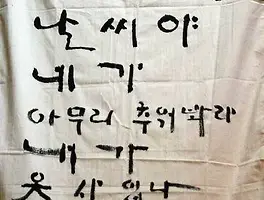 날씨야
네가
아무리 추워봐라
내가
옷 사 입나